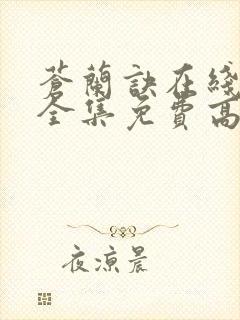 蒼蘭訣在綫
全集免費高
夜涼晨